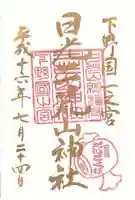 下野国一之宮
日光二荒山神社
平成十六年七月二十四日